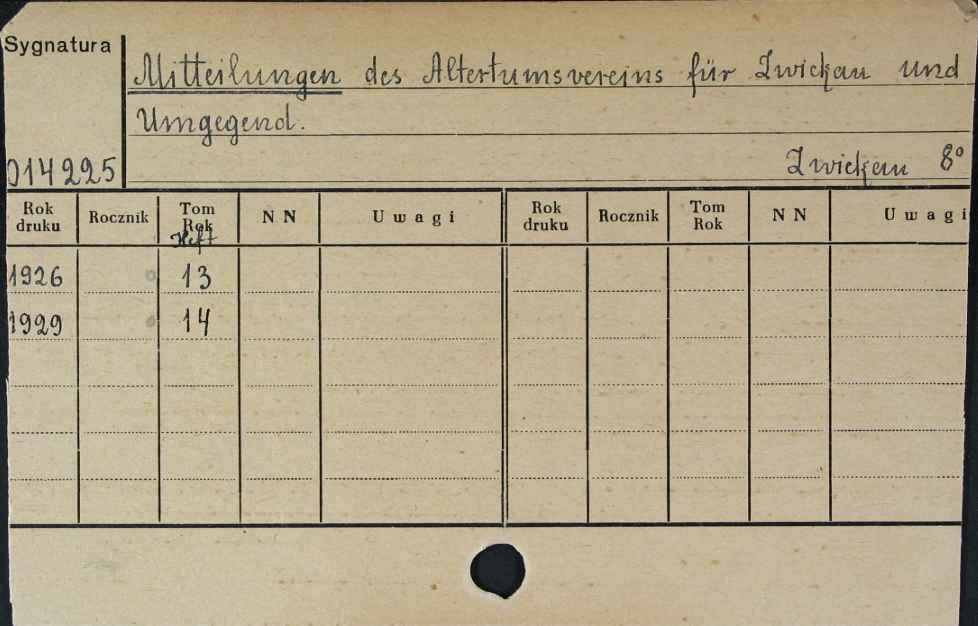 Sygnatura
Mitteilungen des Altertumsvereins für Zwickau und
Umgegend.
014225
Zwickau 8°
Rok druku Rocznik Tom Rok NN Uwagi Rok druku Rocznik Tom Rok NN Uwagi
Heft
1926 13
1929 14